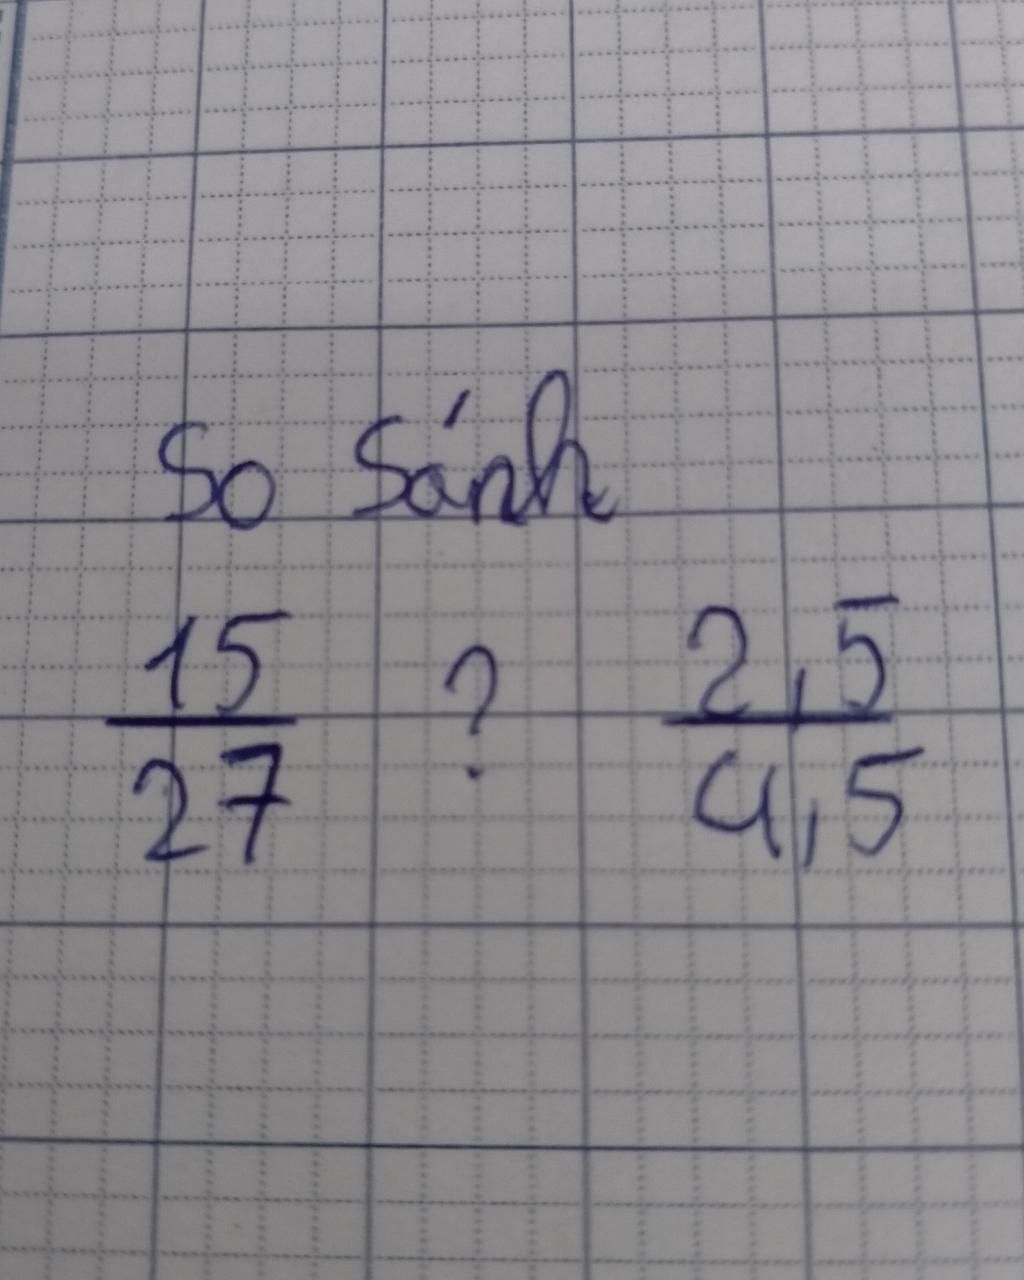 So sánh
15 ? 2,5
27 4,5